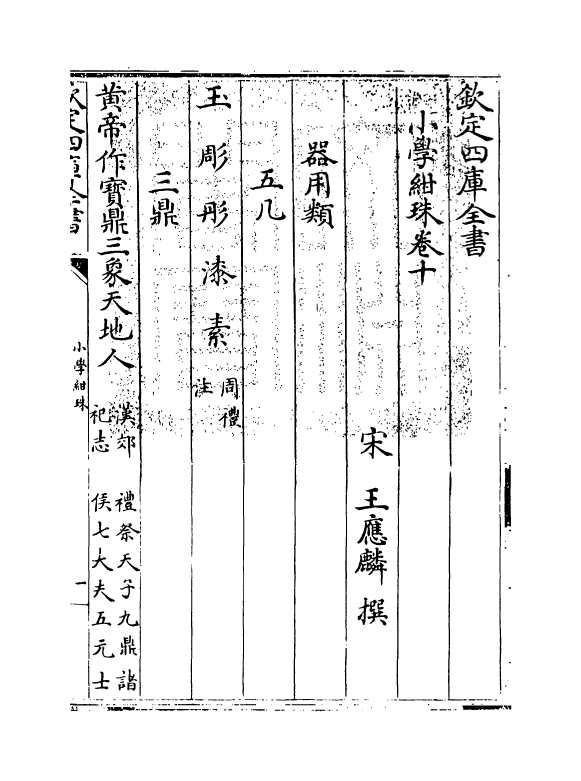 欽定四庫全書
小學紺珠卷十
宋　王應麟　撰
器用類
五几
玉　彫　彤　漆　素　周禮注
三鼎
黄帝作寶鼎三象天地人　漢郊祀志　禮祭天子九鼎諸侯七大夫五元士
小學紺珠
一